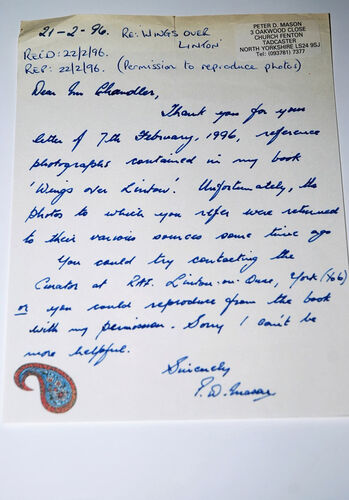 21-2-96. Re: WINGS OVER LINTON
PETER D. MASON
3 OAKWOOD CLOSE
CHURCH FENTON
TADCASTER
NORTH YORKSHIRE LS24 9SJ
Tel: (093781) 7377
REC'D: 22/2/96.
REP: 22/2/96. (Permission to reproduce photos)
Dear Mr Chandler,
Thank you for your
letter of 7th February, 1996, reference
photographs contained in my book
'Wings over Linton'. Unfortunately, the
photos to which you refer were returned
to their various sources some time ago
You could try contacting the
Curator at RAF. Linton-on-Ouse, York (YO6)
or you could reproduce from the book
with my permission. Sorry I can't be
more helpful.
Sincerely
P. D. Mason